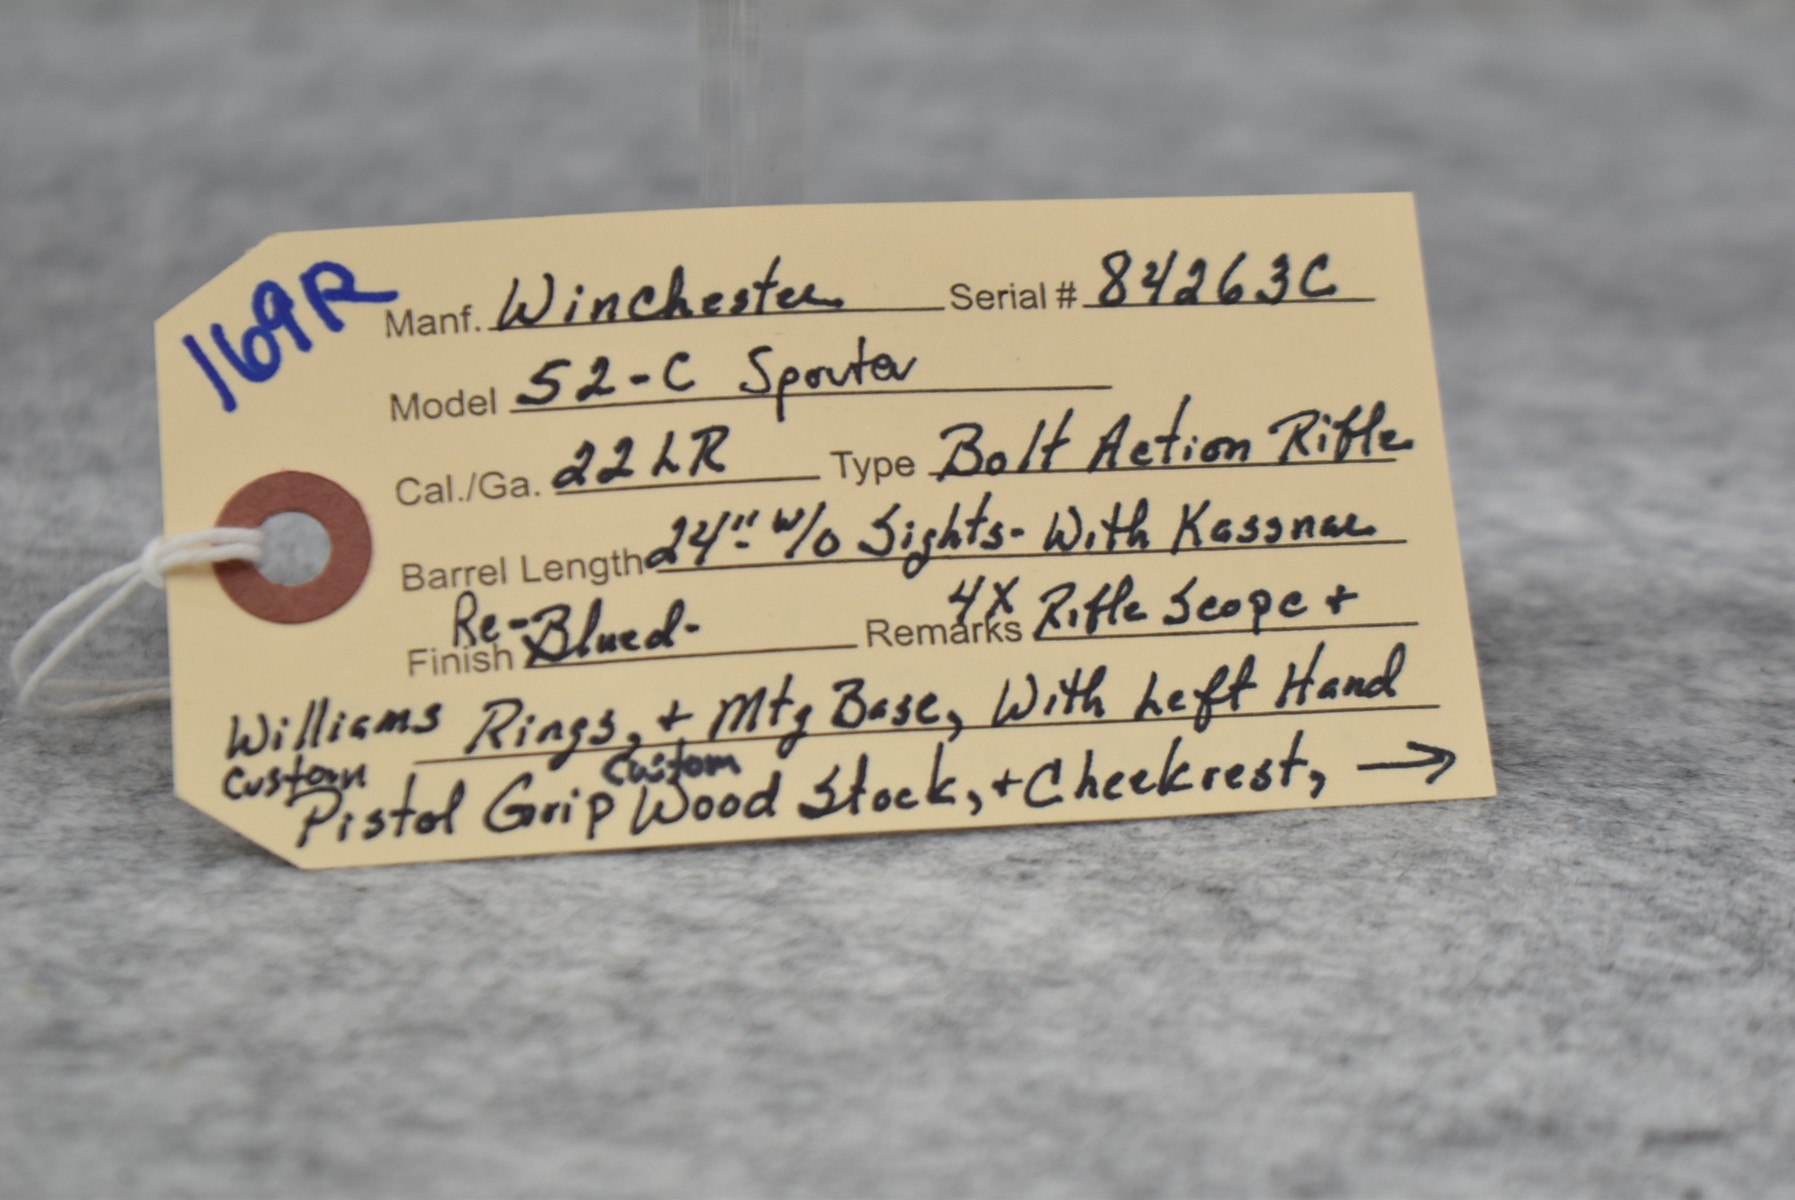 169R
Manf. Winchester Serial # 84263C
Model 52-C Sporter
Cal./Ga. 22LR Type Bolt Action Rifle
Barrel Length 24" w/o Sights- With Kassnar
Finish Re-Blued- Remarks 4X Rifle Scope +
Williams Rings, + Mtg Base, With Left Hand
Custom Pistol Grip Custom Wood Stock, + Cheekrest, →